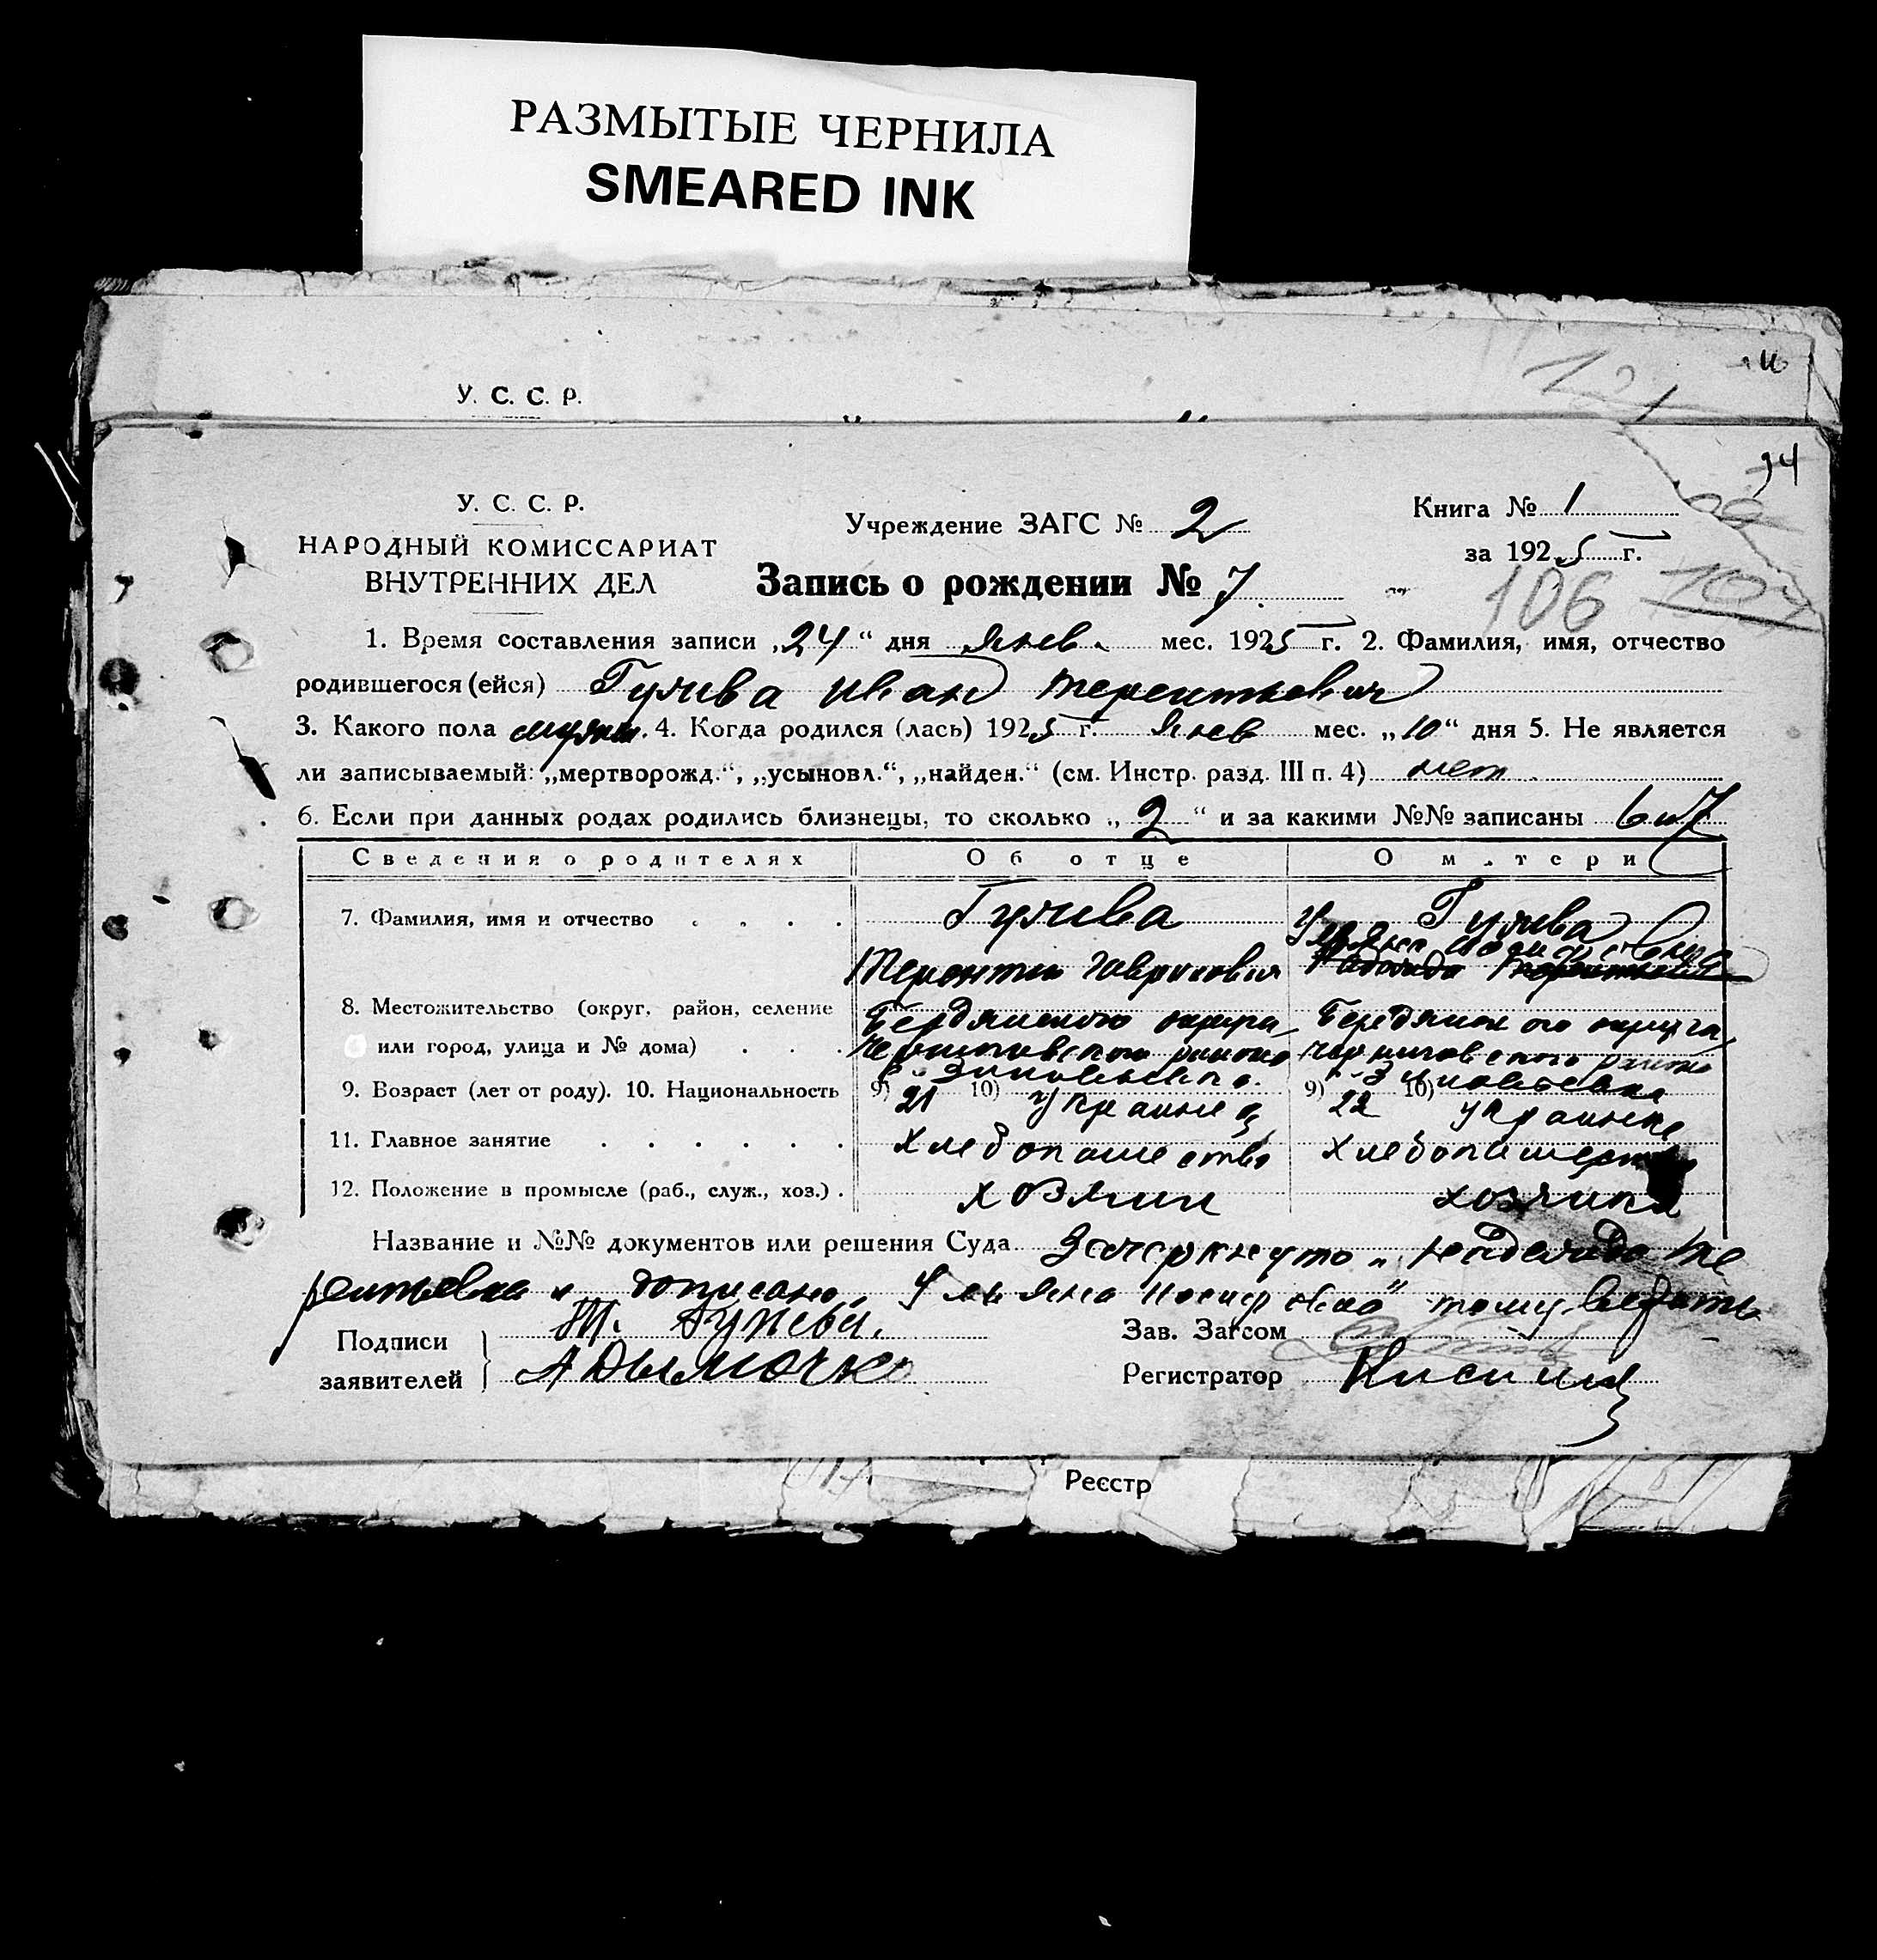 РАЗМЫТЫЕ ЧЕРНИЛА
SMEARED INK
У. С. С. Р.
94
У. С. С. Р.
НАРОДНЫЙ КОМИССАРИАТ
ВНУТРЕННИХ ДЕЛ
Учреждение ЗАГС № 2
Книга № 1
за 1925 г.
Запись о рождении № 7.
106 107
1. Время составления записи „24“ дня янев. мес. 1925 г. 2. Фамилия, имя, отчество
родившегося (ейся) Гулива Иван Терентьевич
3. Какого пола мужск. 4. Когда родился (лась) 1925 г. Янев мес. „10“ дня 5. Не является
ли записываемый: „мертворожд.“, „усыновл.“, „найден.“ (см. Инстр. разд. III п. 4) нет
6. Если при данных родах родились близнецы, то сколько „2“ и за какими №№ записаны 6 и 7
Сведения о родителях Об отце О матери
7. Фамилия, имя и отчество Гулива Гулива
Терентий Ульяна
8. Местожительство (округ, район, селение Бердянского округа Бердянского округа
или город, улица и № дома) Черниговского района Черниговского района
9. Возраст (лет от роду). 10. Национальность 9) 21 10) украинец 9) 22 10) украинка
11. Главное занятие хлебопашество хлебопашество
12. Положение в промысле (раб., служ., хоз.) хозяин хозяйка
Название и №№ документов или решения Суда Зачеркнуто „Надежда Те
рентьевна и дописано „Ульяна тому верить
Подписи
заявителей
Зав. Загсом
Регистратор
Реєстр